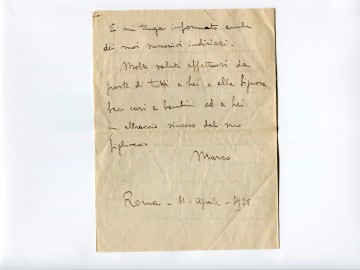 E mi tenga informato anche
dei suoi successivi indirizzi.
Molti saluti affettuosi da
parte di tutti a Lei e alla Signora,
baci cari ai bambini ed a Lei
un abbraccio sincero dal suo
figlioccio
Marco
Roma - 11 - Aprile - 1938